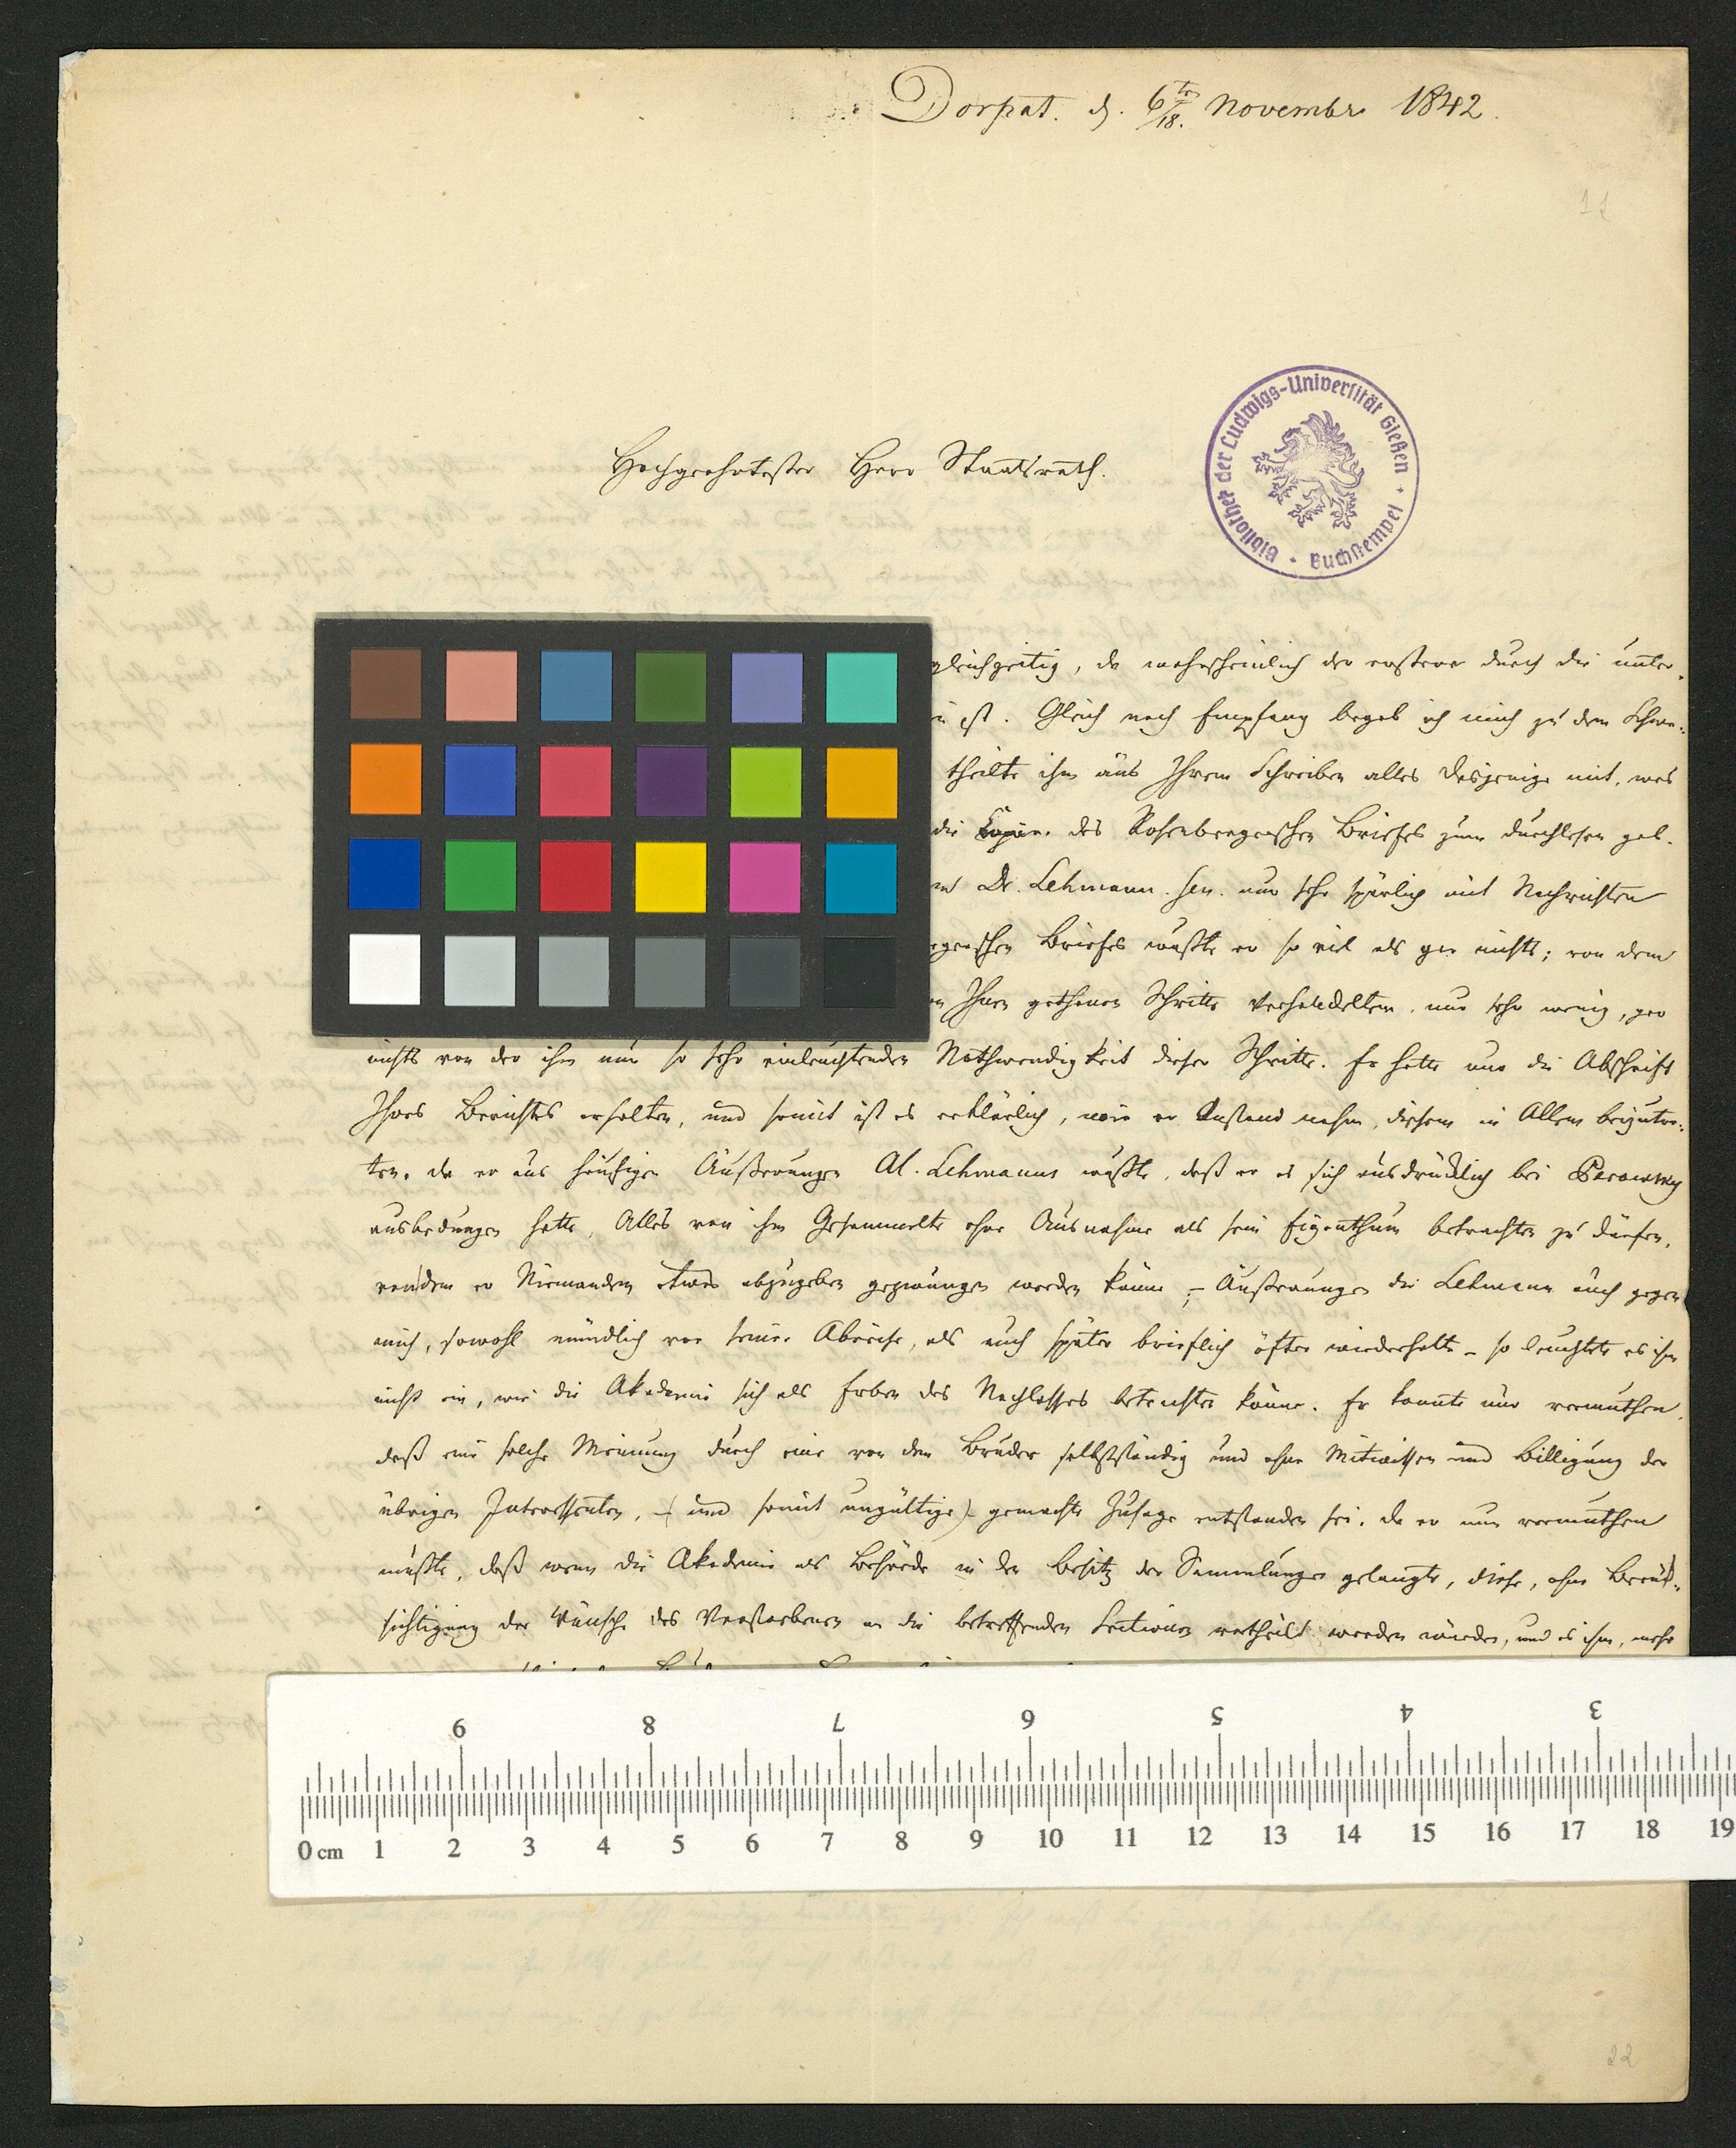 Dorpat. d. 6ten/18. Novembr 1842.
11
Hochgeehrtester Herr Staatsrath.
Bibliothek der Ludwigs-Universität Gießen · Buchstempel ·
gleichzeitig, da wahrscheinlich der erstere durch die unter-
ist. Gleich nach Empfang begab ich mich zu dem Schwa-
theilte ihm aus Ihrem Schreiben alles dasjenige mit, was
die Copie des Rosenbergerschen Briefes zum durchlesen gab.
Dr. Lehmann sen. nur sehr spärlich mit Nachrichten
Briefes wußte er so viel als gar nichts; von dem
Ihnen gethanen Schritte verhandelten, nur sehr wenig, gar
nichts von der ihm nun so sehr einleuchtenden Nothwendigkeit dieser Schritte. Er hatte nur die Abschrift
Ihres Berichtes erhalten, und somit ist es erklärlich, wie er Anstand nahm, diesem in Allem beizutre-
ten, da er aus häufigen Äußerungen Al. Lehmanns wußte, daß er es sich ausdrücklich bei Perowsky
ausbedungen hatte, Alles von ihm Gesammelte ohne Ausnahme als sein Eigenthum betrachten zu dürfen,
von dem er Niemanden etwas abzugeben gezwungen werden könne; – Äußerungen die Lehmann auch gegen
mich, sowohl mündlich vor seiner Abreise, als auch später brieflich öfter wiederholte – so leuchtete es ihm
nicht ein, wie die Akademie sich als Erben des Nachlasses betrachten könne. Er konnte nur vermuthen,
daß eine solche Meinung durch eine von dem Bruder selbstständig und ohne Mitwissen und Billigung der
übrigen Interessenten, – (und somit ungültige) – gemachte Zusage entstanden sei, da er nun vermuthen
mußte, daß wenn die Akademie als Behörde in den Besitz der Sammlungen gelangte, diese, ohne Berück-
sichtigung der Wünsche des Verstorbenen an die betreffenden Sectionen vertheilt werden würden, und es ihm, mehr
9 8 7 6 5 4 3
0 cm 1 2 3 4 5 6 7 8 9 10 11 12 13 14 15 16 17 18 19
22